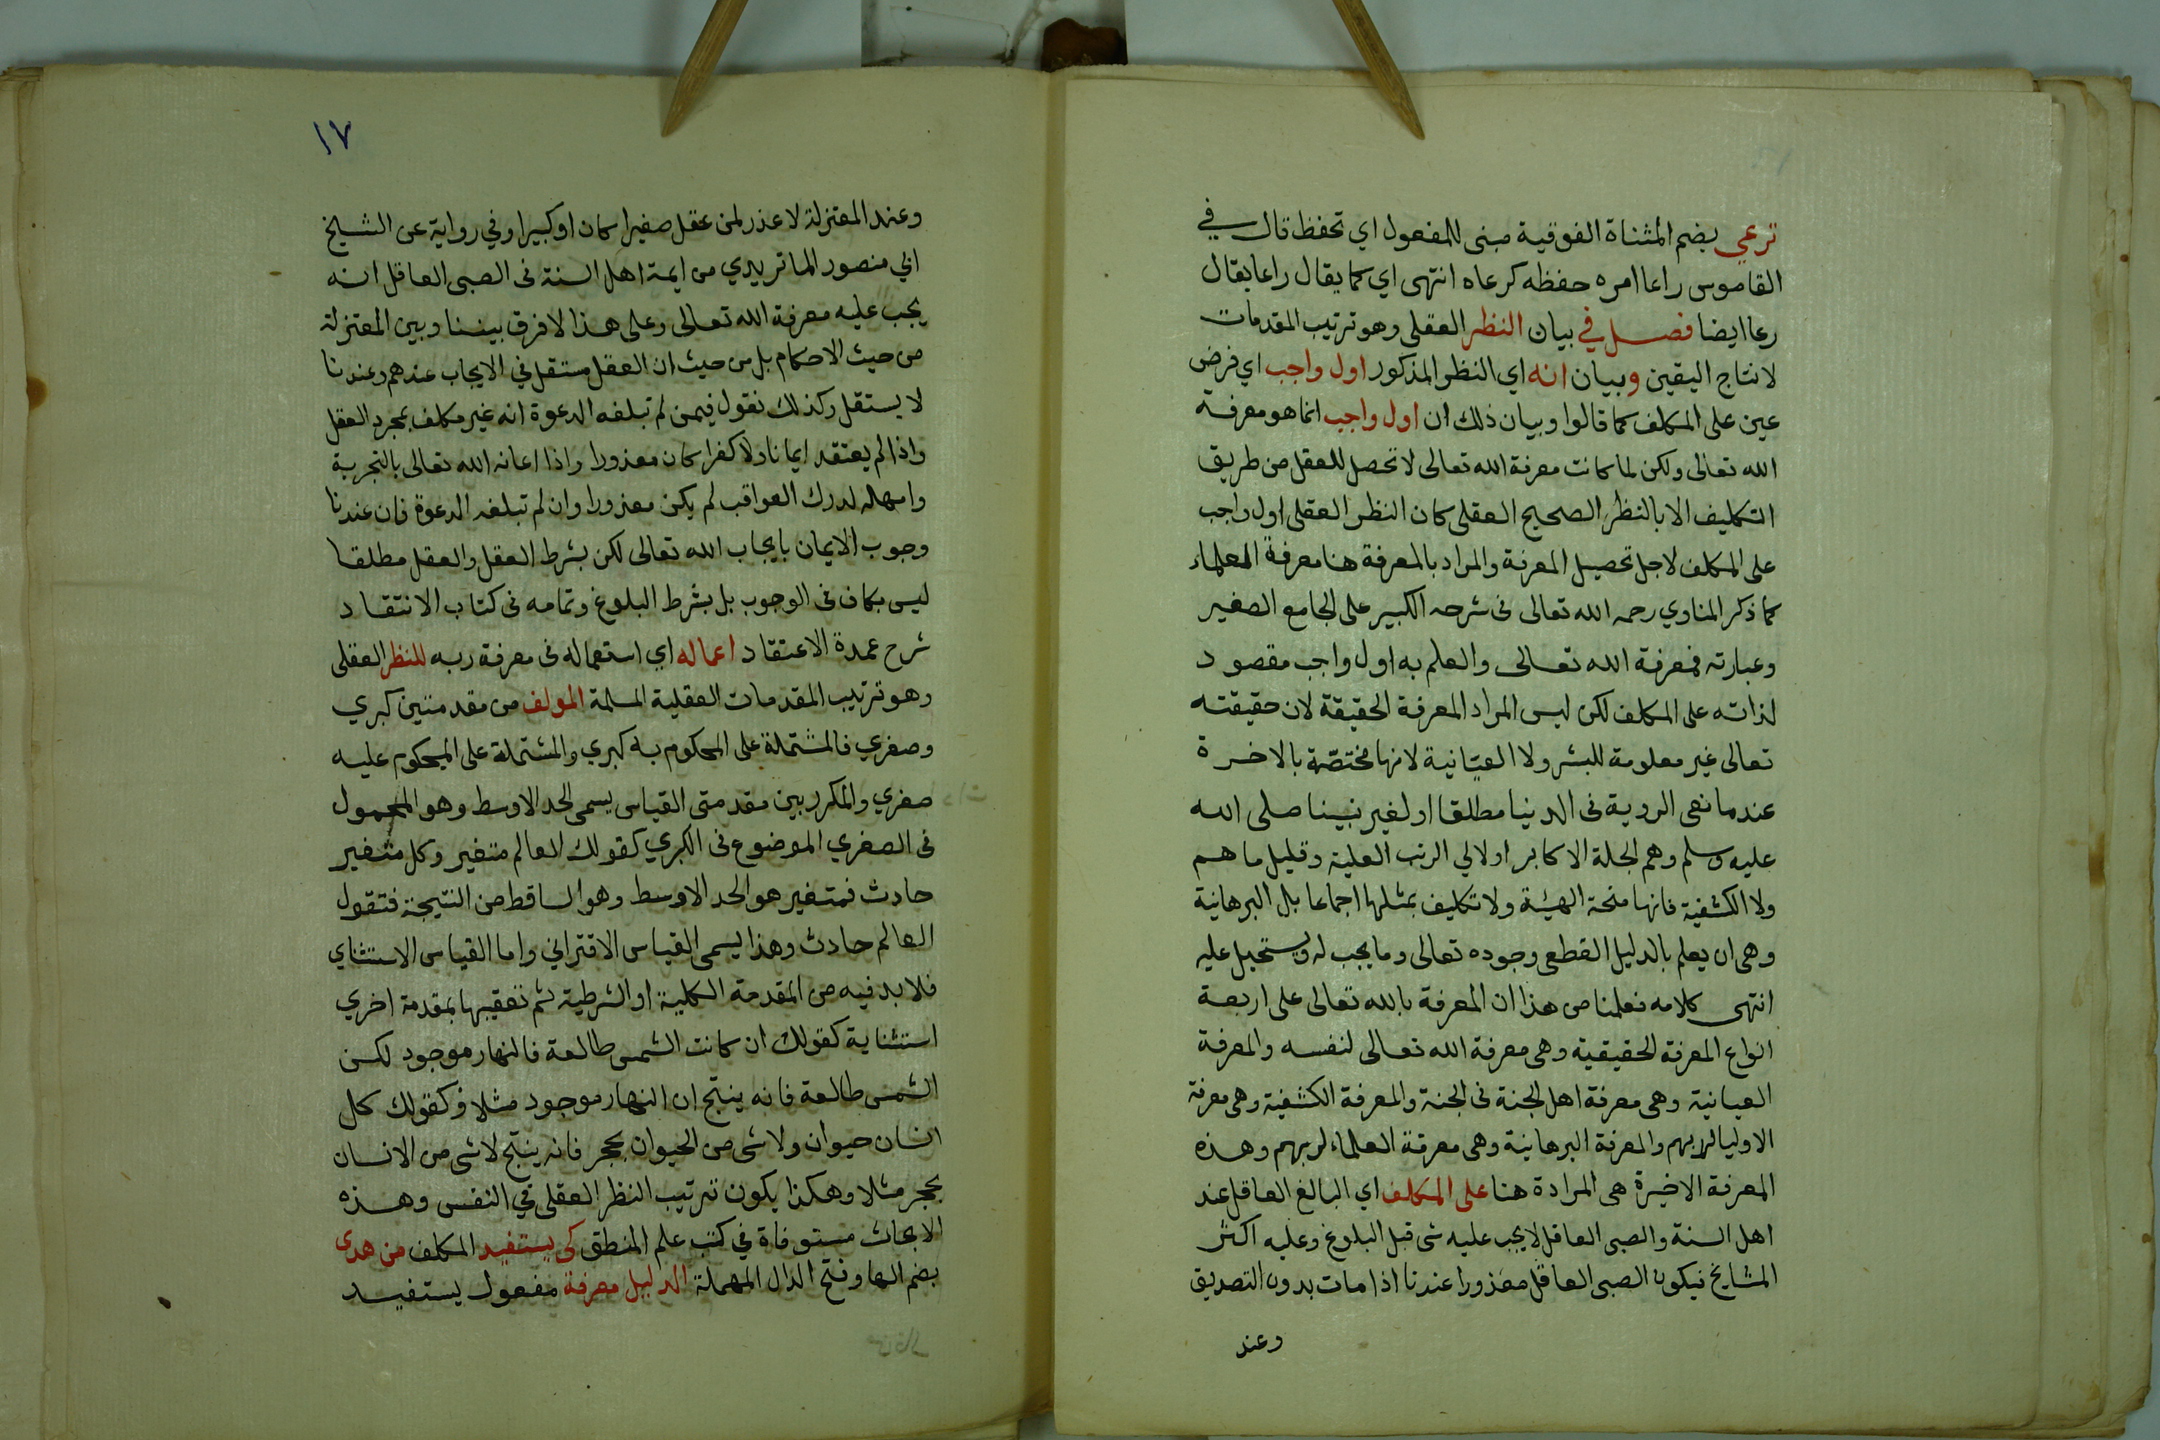 ترعي بضم المثناة الفوقية مبنى للمفعول اي تحفظ قال في
القاموس راعا امره حفظه كرعاه انتهى اي كما يقال راعا يقال
رعا ايضا فصل في بيان النظر العقلى وهو ترتيب المقدمات
لانتاج اليقين وبيان انه اي النظر المذكور اول واجب اي فرض
عين على المكلف كما قالوا وبيان ذلك ان اول واجب انما هو معرفة
الله تعالى ولكن لما كانت معرفة الله تعالى لا تحصل للعقل من طريق
التكليف الا بالنظر الصحيح العقلى كان النظر العقلى اول واجب
على المكلف لاجل تحصيل المعرفة والمراد بالمعرفة هنا معرفة العلماء
كما ذكر المناوي رحمه الله تعالى فى شرحه الكبير على الجامع الصغير
وعبارته فمعرفة الله تعالى والعلم به اول واجب مقصود
لذاته على المكلف لكن ليس المراد المعرفة الحقيقة لان حقيقته
تعالى غير معلومة للبشر ولا العيانية لانها مختصّة بالاخرة
عند مانعى الروية فى الدنيا مطلقا او لغير نبينا صلى الله
عليه وسلم وهم الجلة الاكابر او لاولي الرتب العلية وقليل ما هم
ولا الكشفية فانها منحة الهيّة ولا تكليف بمثلها اجماعا بل البرهانية
وهى ان يعلم بالدليل القطعى وجوده تعالى وما يجب له ويستحيل عليه
انتهى كلامه فعلمنا من هذا ان المعرفة بالله تعالى على اربعة
انواع المعرفة الحقيقية وهى معرفة الله تعالى لنفسه والمعرفة
العيانية وهى معرفة اهل الجنة فى الجنة والمعرفة الكشفية وهى معرفة
الاوليا لربهم والمعرفة البرهانية وهى معرفة العلماء لربهم وهذه
المعرفة الاخيرة هى المرادة هنا على المكلف اي البالغ العاقل عند
اهل السنة والصبى العاقل لا يجب عليه شى قبل البلوغ وعليه اكثر
المشايخ فيكون الصبى العاقل معذورا عندنا اذا مات بدون التصديق
وعند
١٧
وعند المعتزلة لا عذر لمن عقل صغيرا كان او كبيرا وفي رواية عن الشيخ
ابي منصور الماتريدي من ايمة اهل السنة فى الصبى العاقل انه
يجب عليه معرفة الله تعالى وعلى هذا لا فرق بيننا وبين المعتزلة
من حيث الاحكام بل من حيث ان العقل مستقل في الايجاب عندهم وعندنا
لا يستقل وكذلك نقول فيمن لم تبلغه الدعوة انه غير مكلف بمجرد العقل
واذا لم يعتقد ايمانا ولا كفرا كان معذورا واذا اعانه الله تعالى بالتجربة
وامهله لدرك العواقب لم يكن معذورا وان لم تبلغه الدعوة فان عندنا
وجوب الايمان بايجاب الله تعالى لكن بشرط العقل والعقل مطلقا
ليس بكاف فى الوجوب بل بشرط البلوغ وتمامه فى كتاب الانتقاد
شرح عمدة الاعتقاد اعماله اي استعماله فى معرفة ربه للنظر العقلى
وهو ترتيب المقدمات العقلية المسلمة المولف من مقدمتين كبري
وصغري فالمشتملة على المحكوم به كبري والمشتملة على المحكوم عليه
صغري والمكرر بين مقدمتى القياس يسمى الحد الاوسط وهو المحمول
فى الصغري الموضوع فى الكبري كقولك العالم متغير وكل متغير
حادث فمتغير هو الحد الاوسط وهو الساقط من النتيجة فتقول
العالم حادث وهذا يسمى القياس الاقتراني واما القياس الاستثناي
فلا بد فيه من المقدمة الكلية او الشرطية ثم تعقيبها بمقدمة اخري
استثناية كقولك ان كانت الشمس طالعة فالنهار موجود لكن
الشمس طالعة فانه ينتج ان النهار موجود مثلا وكقولك كل
انسان حيوان ولا شى من الحيوان بحجر فانه ينتج لا شى من الانسان
بحجر مثلا وهكذا يكون ترتيب النظر العقلى في النفس وهذه
الابحاث مستوفاة في كتب علم المنطق كى يستفيد المكلف من هدى
بضم الها وفتح الدال المهملة الدليل معرفة مفعول يستفيد